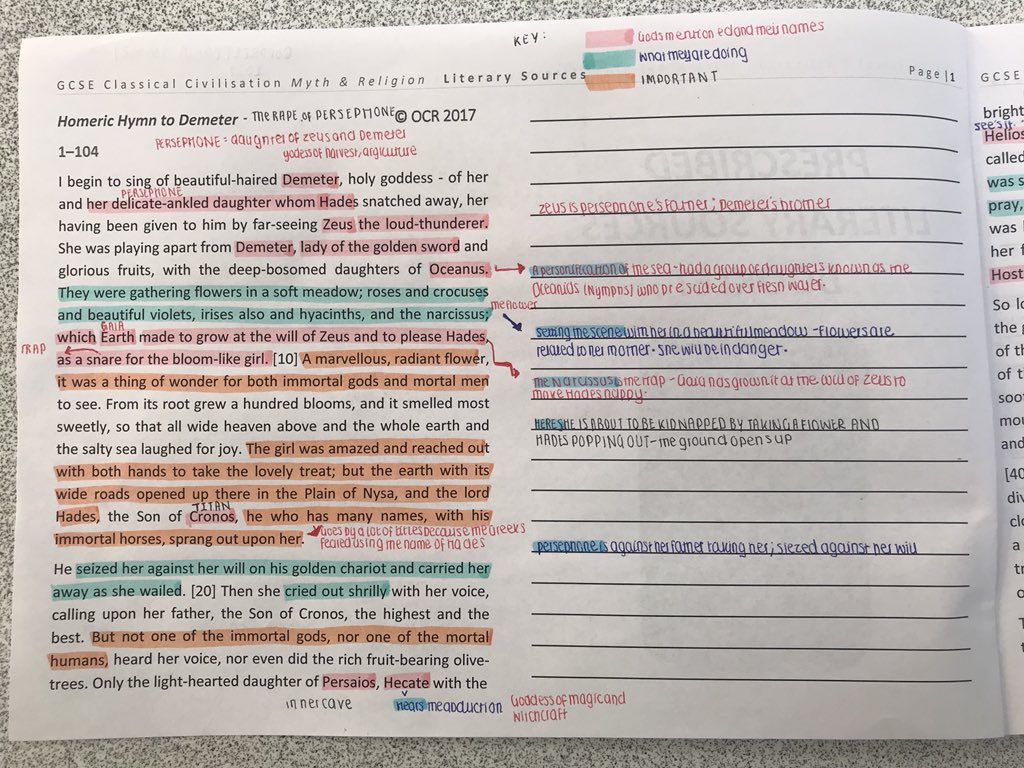 KEY:
Gods mentioned and their names
What they are doing
IMPORTANT
GCSE Classical Civilisation Myth & Religion Literary Sources
Page|1
Homeric Hymn to Demeter - THE RAPE OF PERSEPHONE © OCR 2017
PERSEPHONE = daughter of zeus and Demeter
1–104
godess of harvest, argiculture
I begin to sing of beautiful-haired Demeter, holy goddess - of her
PERSEPHONE
and her delicate-ankled daughter whom Hades snatched away, her
having been given to him by far-seeing Zeus the loud-thunderer.
She was playing apart from Demeter, lady of the golden sword and
glorious fruits, with the deep-bosomed daughters of Oceanus.
They were gathering flowers in a soft meadow; roses and crocuses
and beautiful violets, irises also and hyacinths, and the narcissus;
the flower
GAIA
which Earth made to grow at the will of Zeus and to please Hades,
TRAP
as a snare for the bloom-like girl. [10] A marvellous, radiant flower,
it was a thing of wonder for both immortal gods and mortal men
to see. From its root grew a hundred blooms, and it smelled most
sweetly, so that all wide heaven above and the whole earth and
the salty sea laughed for joy. The girl was amazed and reached out
with both hands to take the lovely treat; but the earth with its
wide roads opened up there in the Plain of Nysa, and the lord
TITAN
Hades, the Son of Cronos, he who has many names, with his
immortal horses, sprang out upon her.
Goes by a lot of titles because the Greeks
feared using the name of Hades
He seized her against her will on his golden chariot and carried her
away as she wailed. [20] Then she cried out shrilly with her voice,
calling upon her father, the Son of Cronos, the highest and the
best. But not one of the immortal gods, nor one of the mortal
humans, heard her voice, nor even did the rich fruit-bearing olive-
trees. Only the light-hearted daughter of Persaios, Hecate with the
in her cave
Hears the abduction
Goddess of magic and
Witchcraft
zeus is persephone's father; Demeter's brother
A personification of the sea - had a group of daughters known as the
Oceanids (Nymphs) who presided over fresh water.
setting the scene with her in a beautiful meadow - Flowers are
related to her mother. She will be in danger.
The Narcissus is the trap - Gaia has grown it at the will of Zeus to
make Hades happy.
HERE SHE IS ABOUT TO BE KIDNAPPED BY TAKING A FLOWER AND
HADES POPPING OUT - the ground opens up
persephone is against her father taking her; siezed against her will
GCSE
bright
see's it
Helios
called
was s
pray,
was
her f
Host
So lo
the
of th
of t
soo
mou
and
[40
div
clo
a
tr
o
T